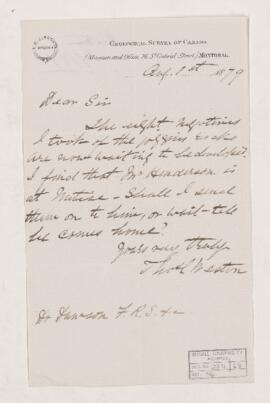 GEOLOGICAL SURVEY OF CANADA
(Museum and Office, 76, St Gabriel Street,) MONTREAL.
Aug. 1st 1879
Dear Sir
The eight negatives
I took of the joggins rocks
are now waiting to be developed.
I find that Mr Henderson is
at Metise - Shall I send
them on to him, or wait till
he comes home?
Yours very truly
Thos C Weston
Dr Dawson F.R.S. &c
McGILL UNIVERSITY
ARCHIVES